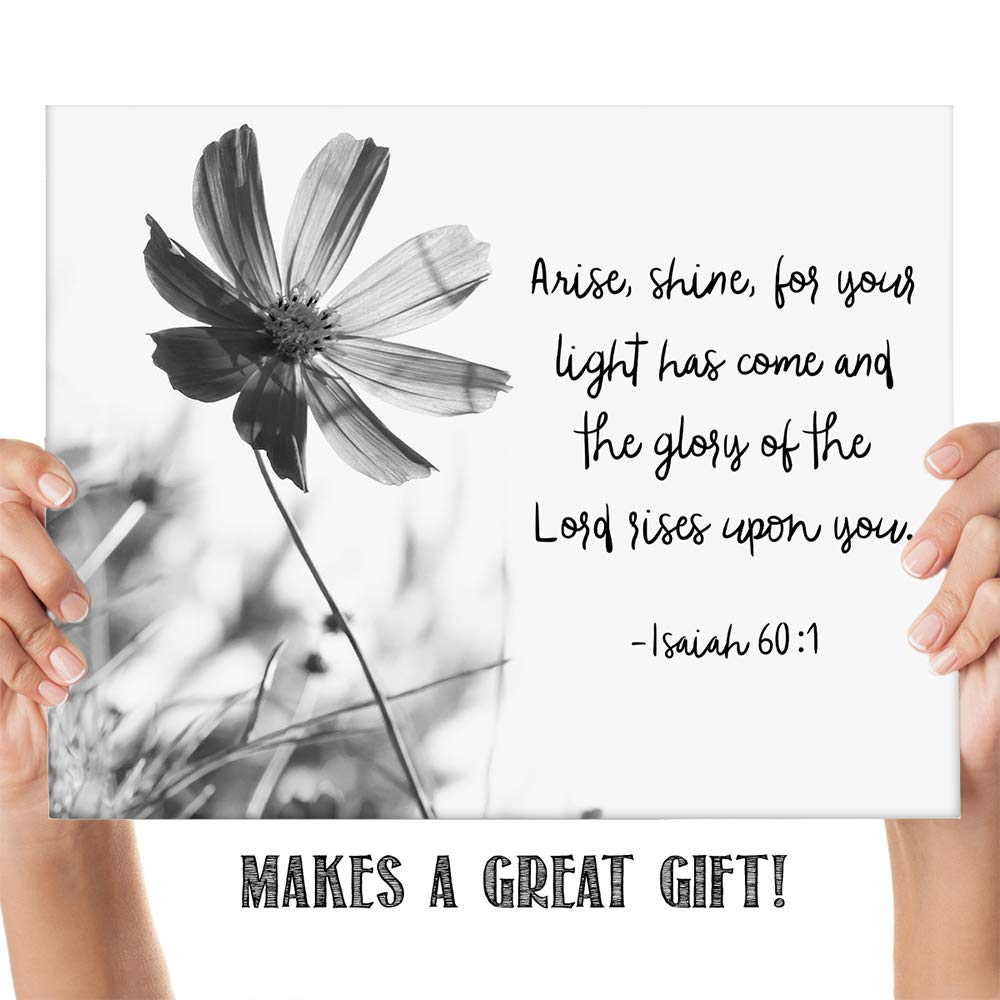 Arise, shine, for your
light has come and
the glory of the
Lord rises upon you.
-Isaiah 60:1
MAKES A GREAT GIFT!